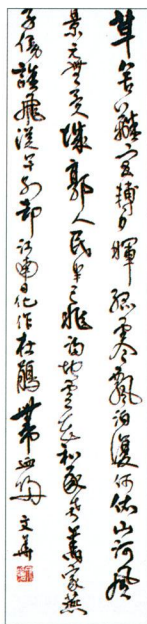 草舍離宮轉夕暉孤雲飄泊復何依山河風
景元無異城郭人民半已非滿地蘆花和我老舊家燕
子傍誰飛從今別却江南日化作杜鵑帶血歸 文華